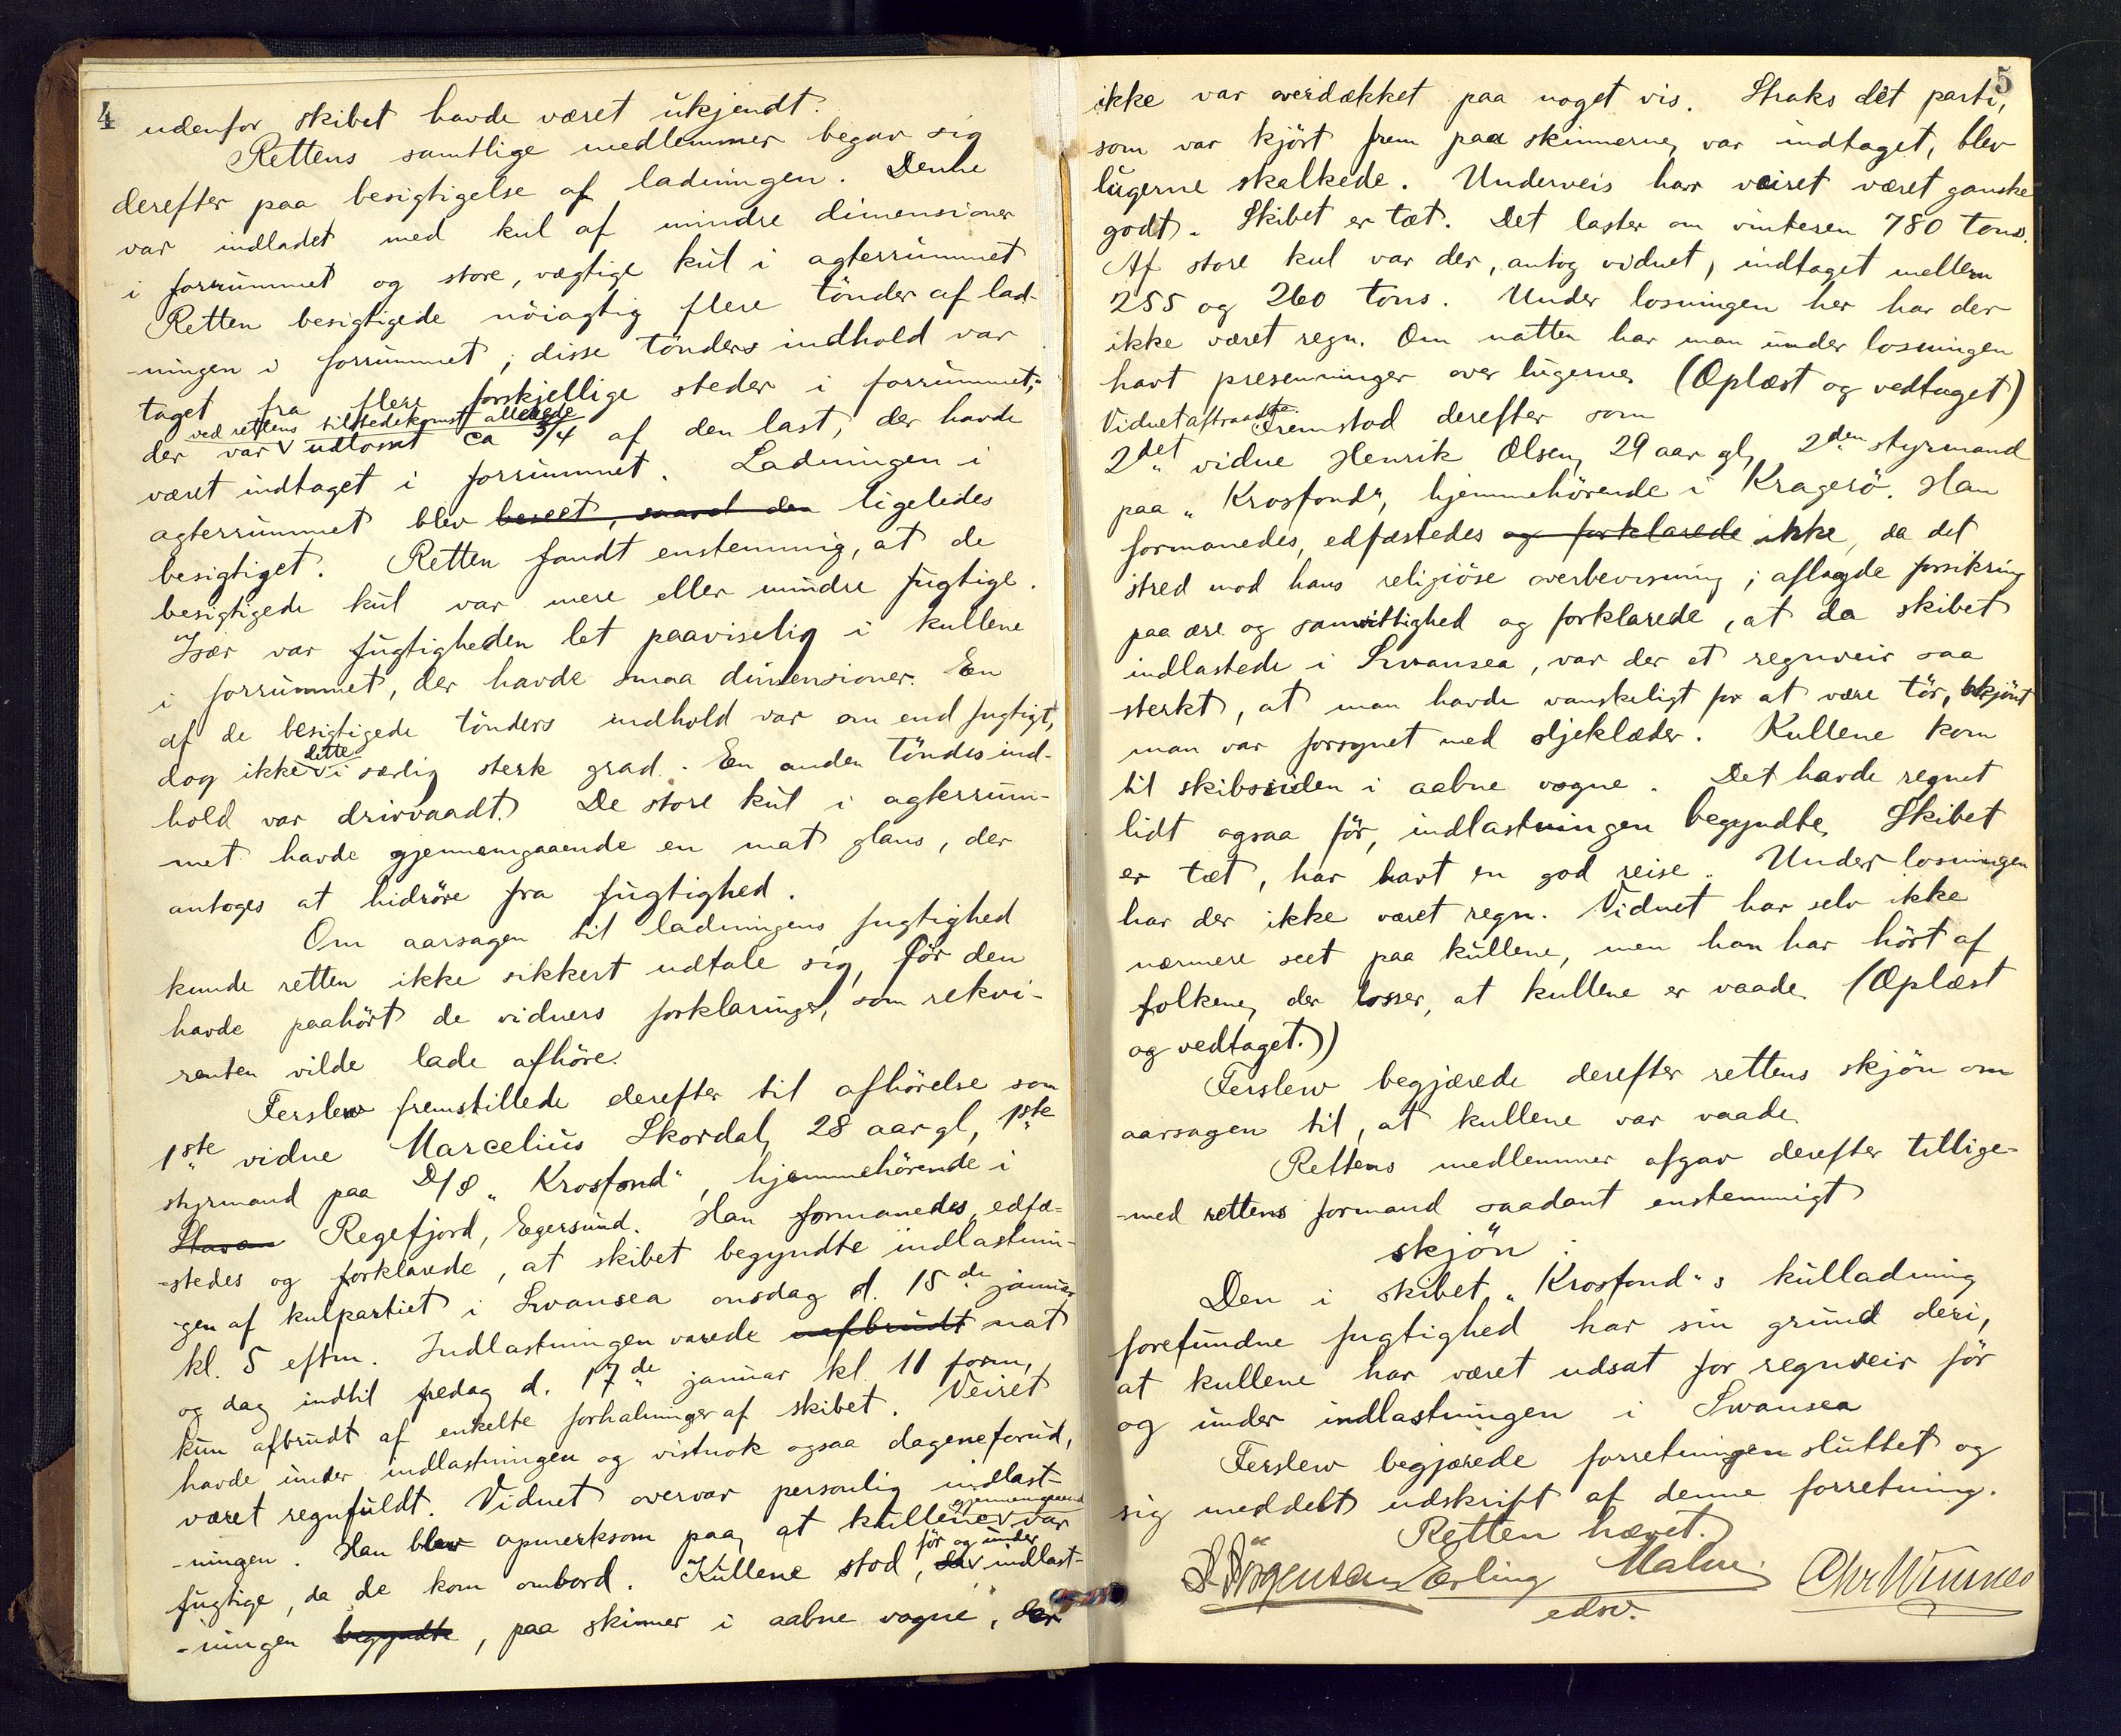 4
udenfor skibet havde været ukjendt.
Rettens samtlige medlemmer begav sig
derefter paa besigtigelse af ladningen. Denne
var indladet med kul af mindre dimensioner
i forrummet og store, vægtige kul i agterrummet
Retten besigtigede nöiagtig flere tönder af lad-
-ningen i forrummet; disse tönders indhold var
taget fra flere forskjellige steder i forrummet;
ved rettens tilstedekomst allerede
der var v udlosset ca 3/4 af den last, der havde
været indtaget i forrummet. Ladningen i
agterrummet blev beseet, saavel den ligeledes
besigtiget. Retten fandt enstemmig, at de
besigtigede kul var mere eller mindre fugtige.
Især var fugtigheden let paaviselig i kullene
i forrummet, der havde smaa dimensioner. En
af de besigtigede tönders indhold var om end fugtigt,
dette
dog ikke v i særlig sterk grad. En anden töndes ind-
hold var drivvaadt. De store kul i agterrum-
met havde gjennemgaaende en mat glans, der
antoges at hidröre fra fugtighed.
Om aarsagen til ladningens fugtighed
kunde retten ikke sikkert udtale sig, för den
havde paahört de vidners forklaringer, som rekvi-
renten vilde lade afhöre.
Ferslew fremstillede derefter til afhörelse som
1ste vidne Marcelius Skordal, 28 aar gl, 1ste
styrmand paa D/S „Krosfond“, hjemmehörende i
Stavan Regefjord, Egersund. Han formanedes, edfæ-
-stedes og forklarede, at skibet begyndte indlastnin-
-gen af kulpartiet i Swansea onsdag d. 15de januar
kl. 5 eftm. Indlastningen varede uafbrudt nat
og dag indtil fredag d. 17de januar kl. 11 form,
kun afbrudt af enkelte forhalninger af skibet. Veiret
havde under indlastningen og vistnok ogsaa dagene forud,
været regnfuldt. Vidnet overvar personlig indlast-
gjennemgaaende
-ningen. Han blev opmerksom paa, at kullene v var
för og under
fugtige, da de kom ombord. Kullene stod, da v indlast-
-ningen begyndte, paa skinner i aabne vogne, der
5
ikke var overdækket paa noget vis. Straks det parti,
som var kjört frem paa skinnerne, var indtaget, blev
lugerne skalkede. Underveis har veiret været ganske
godt. Skibet er tæt. Det laster om vinteren 780 tons.
Af store kul var der, antog vidnet, indtaget mellem
255 og 260 tons. Under losningen her har der
ikke været regn. Om natten har man under losningen
havt presenninger over lugerne. (Oplæst og vedtaget)
Vidnet aftraadte. Fremstod derefter som
2det vidne Henrik Olsen, 29 aar gl, 2den styrmand
paa „Krosfond“, hjemmehörende i Kragerö. Han
formanedes, edfæstedes og forklarede ikke, da det
stred mod hans religiöse overbevisning; aflagde forsikring
paa ære og samvittighed og forklarede, at da skibet
indlastede i Swansea, var der et regnveir saa
sterkt, at man havde vanskeligt for at være tör, skjönt
man var forsynet med oljeklæder. Kullene kom
til skibssiden i aabne vogne. Det havde regnet
lidt ogsaa för, indlastningen begyndte. Skibet
er tæt, har havt en god reise. Under losningen
har der ikke været regn. Vidnet har selv ikke
nærmere seet paa kullene, men han har hört af
folkene, der losser, at kullene er vaade. (Oplæst
og vedtaget.))
Ferslew begjærede derefter rettens skjön om
aarsagen til, at kullene var vaade
Rettens medlemmer afgav derefter tillige-
-med rettens formand saadant enstemmigt
skjön:
Den i skibet „Krosfond“s kulladning
forefundne fugtighed har sin grund deri,
at kullene har været udsat for regnveir för
og under indlastningen i Swansea
Ferslew begjærede forretningen sluttet og
sig meddelt udskrift af denne forretning.
Retten hævet.
Jörgensen Erling Malm Chr Winnes
edsv.